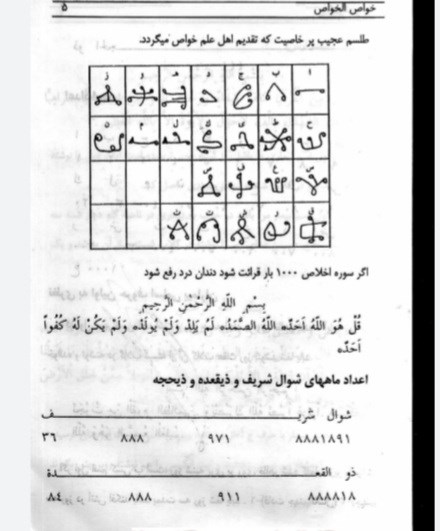 خواص الخواص ۵
طلسم عجیب پر خاصیت که تقدیم اهل علم خواص میگردد.
اگر سوره اخلاص ۱۰۰۰ بار قرائت شود دندان درد رفع شود
بِسْمِ اللّهِ الرَّحْمنِ الرَّحیمِ
قُل هُوَ اللّهُ اَحَدٌ، اللّهُ الصَّمَدُ، لَمْ یَلِدْ وَلَمْ یُولَدْ، وَلَمْ یَکُنْ لَهُ کُفُواً
اَحَدٌ،
اعداد ماههای شوال شریف و ذیقعده و ذیحجه
شوال شریــــــف
۸۸۸۱۸۹۱ ۹۷۱ ۸۸۸ ۳۶
ذو القعــــــدة
۸۸۸۸۱۸ ۹۱۱ ۸۸۸ ۸۴